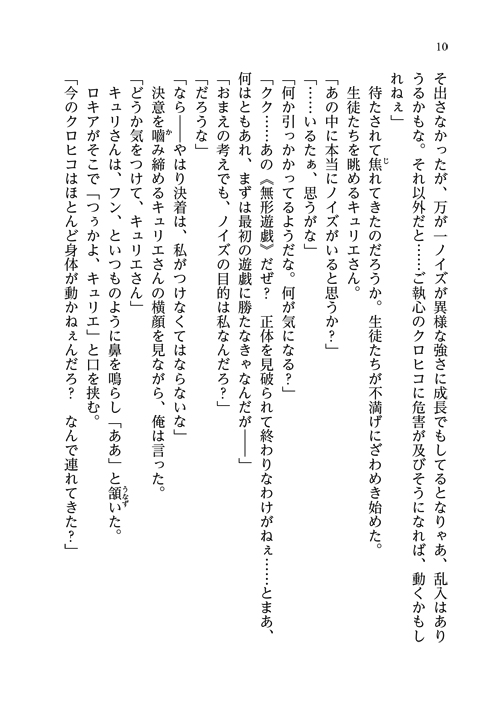 10
そ出さなかったが、万が一ノイズが異様な強さに成長でもしてるとなりゃあ、乱入はあり
うるかもな。それ以外だと……ご執心のクロヒコに危害が及びそうになれば、動くかもし
れねぇ」
待たされて焦れてきたのだろうか。生徒たちが不満げにざわめき始めた。
生徒たちを眺めるキュリエさん。
「あの中に本当にノイズがいると思うか？」
「……いるたぁ、思うがな」
「何か引っかかってるようだな。何が気になる？」
「クク……あの《無形遊戯》だぜ？　正体を見破られて終わりなわけがねぇ……とまあ、
何はともあれ、まずは最初の遊戯に勝たなきゃなんだが――」
「おまえの考えでも、ノイズの目的は私なんだろ？」
「だろうな」
「なら――やはり決着は、私がつけなくてはならないな」
決意を嚙み締めるキュリエさんの横顔を見ながら、俺は言った。
「どうか気をつけて、キュリエさん」
キュリさんは、フン、といつものように鼻を鳴らし「ああ」と頷いた。
ロキアがそこで「つぅかよ、キュリエ」と口を挟む。
「今のクロヒコはほとんど身体が動かねぇんだろ？　なんで連れてきた？」